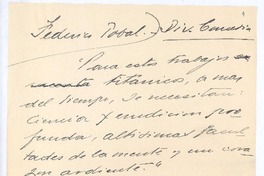 Federico Tobal.) Div. Comedia
"Para estos trabajos
titánicos, a mas
del tiempo, se necesitan:
ciencia y erudicion pro
funda, altísimas facul
tades de la mente y un cora
zon ardiente."